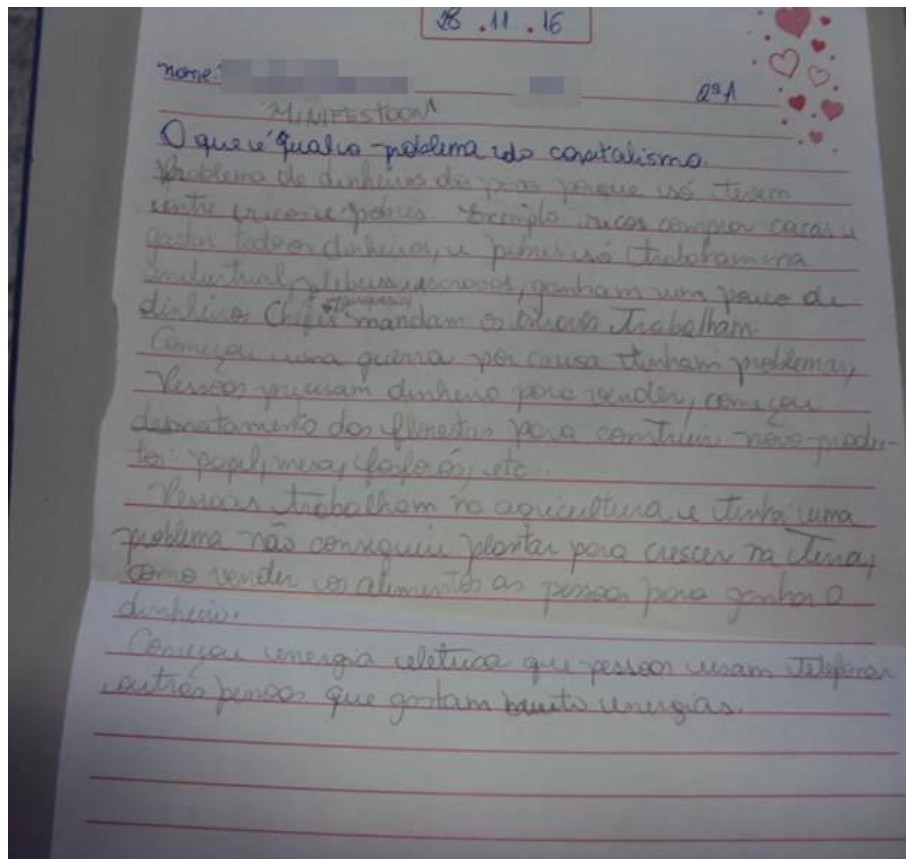 28.11.16
nome:
2ºA
"MINIFESTOON"
O que é qual o problema do capitalismo.
Problema de dinheiros do povo porque só tivem
entre ricos e pobres Exemplo ricos compror casas e
gastar todo os dinheiros, e pobres só trabalham na
industrial, plebeus, escravos, ganham um pouco de
dinheiros Chefes mandam os escravos Trabalham.
Começou uma guerra por causa tinham problemas,
Pessoas precisam dinheiro para vender, começou
desmatamento dos florestas para construir novo produ-
tos papel, mesa, fosforós, etc.
Pessoas trabalham na agricultura e tinha uma
problema não conseguiu plantar para crescer na Terra,
como vender os alimentos as pessoas para ganhar o
dinheiro.
Começou energia eletrica que pessoas usam Telefonar
outros pessoas que gastam muito energias.